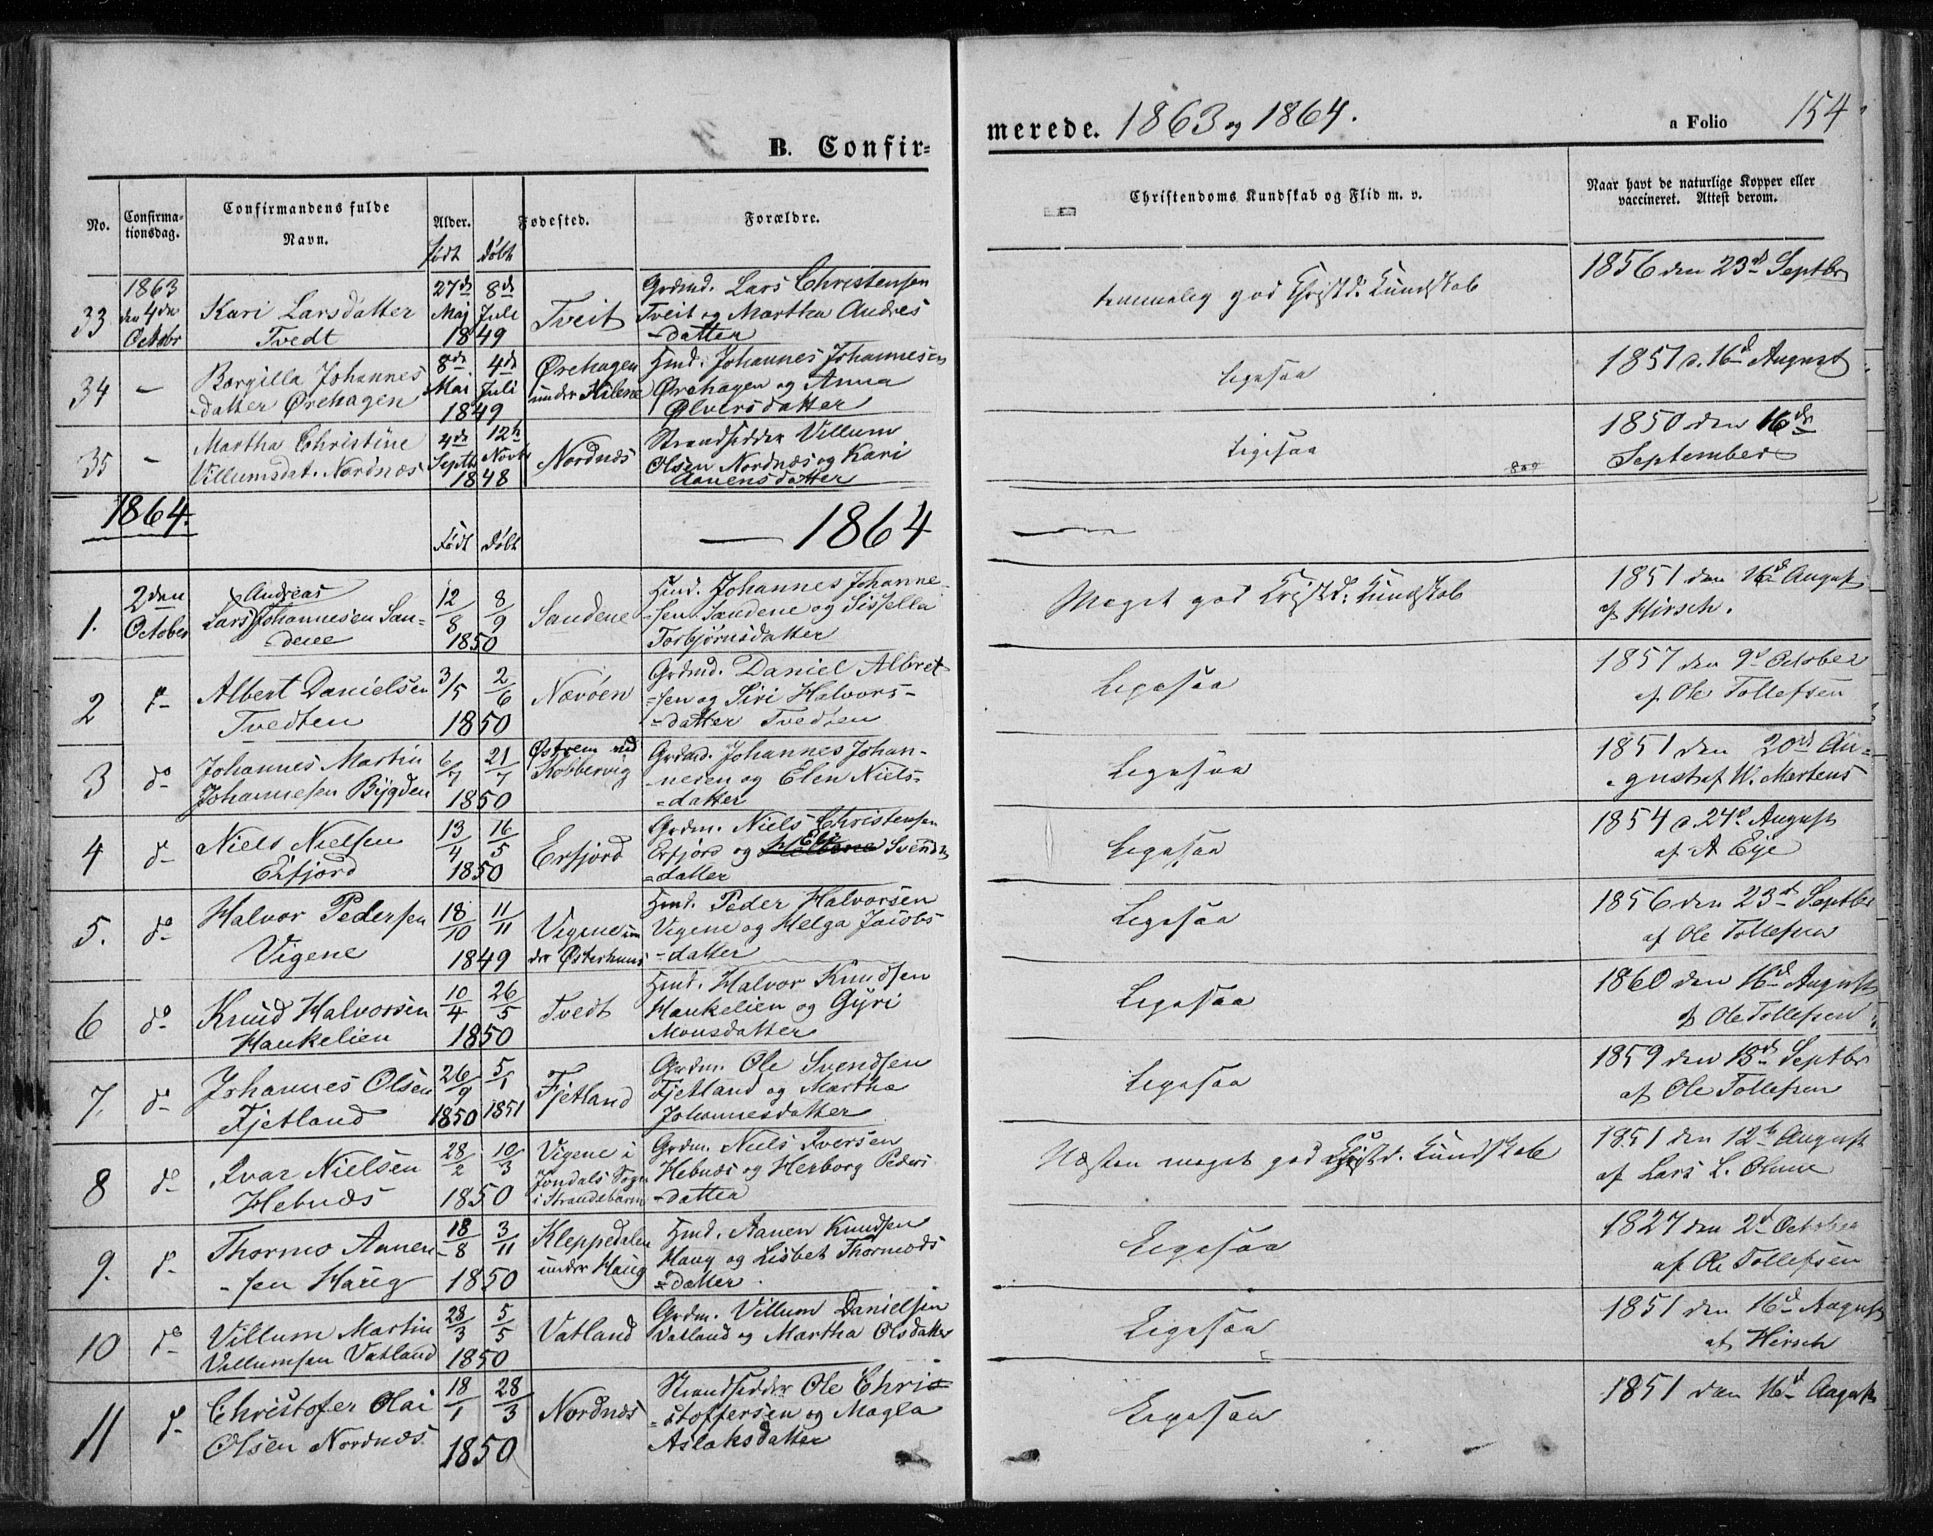 B. Confir=
merede. 1863 og 1864.
a Folio 154
No.
Confirma-
tionsdag.
Confirmandens fulde
Navn.
Alder.
Født Døbt
Fødested.
Forældre.
Christendoms Kundskab og Flid m. v.
Naar havt de naturlige Kopper eller
vaccineret. Attest derom.
33
1863
den 4de
Octobr
Kari Larsdatter
Tvedt
27de 8de
Maj Juli
1849
Tveit
Grdmd. Lars Christensen
Tveit og Martha Andres
-datter
temmelig god Christd. Kundskab
1856 den 23d Septbr
34
–
Borgilla Johannes
-datter Ørehagen
8de 4de
Mai Juli
1849
Ørehagen
under Hilene
Hmd. Johannes Johannesen
Ørehagen og Anna
Ølversdatter
Ligesaa
1851 d. 16d August
35
–
Martha Christine
Villumsdat. Nordnæs
4de 12te
Septb Novb
1848
Nordnæs
Strandsidder Villum
Olsen Nordnæs og Kari
Aanensdatter
Ligesaa
1850 den 16de
September
1864.
Født Døbt
— 1864
1.
2den
October
Andreas
Lars Johannesen San-
dene
12/8 8/9
1850
Sandene
Hmd. Johannes Johanne-
-sen Sandene og Sissella
Torbjørnsdatter
Meget god Christd. Kundskab
1851 den 16d August
af Hirsch.
2
do
Albert Danielsen
Tvedten
3/5 2/6
1850
Nærøen
Grdmd. Daniel Albret
=sen og Siri Halvors-
-datter Tvedten
Ligesaa
1857 den 9d October
af Ole Tollefsen
3
do
Johannes Martin
Johannesen Bygden
6/7 21/7
1850
Østrem ved
Kobbervig
Grdmd. Johannes Johan-
-nesen og Elen Niels-
-datter
Ligesaa
1851 den 20de Au-
-gust af W. Mertens
4
do
Niels Nielsen
Erfjord
13/4 16/5
1850
Erfjord
Grdm. Niels Christensen
Erfjord og Svends
=datter
Ligesaa
1854 d. 24d August
af A Eje
5.
do
Halvor Pedersen
Vigene
18/10 11/11
1849
Vigene un
der Østerhuus
Hmd. Peder Halvorsen
Vigene og Helga Jacobs
-datter
Ligesaa
1856 den 23d Septbr
af Ole Tollefsen
6
do
Knud Halvorsen
Haukelien
10/4 26/5
1850
Tvedt
Hmd. Halvor Knudsen
Haukelien og Gyri
Monsdatter
Ligesaa
1860 den 16d August
af Ole Tollefsen
7.
do
Johannes Olsen
Fjetland
26/9 5/1
1850 1851
Fjetland
Grdm. Ole Svendsen
Fjetland og Martha
Johannesdatter
Ligesaa
1859 den 18d Septbr
af Ole Tollefsen
8
do
Ivar Nielsen
Hebnæs
28/2 10/3
1850
Vigene i
Jondals Sogn
i Strandebarm
Grdm. Niels Iversen
Hebnæs og Herborg Peders
-datter
Næsten meget god Christd. Kundskab
1851 den 12te August
af Lars L. Olmue
9.
do
Thormo Aanen
-sen Haug
18/8 3/11
1850
Kleppedalen
under Haug
Hmd. Aanen Knudsen
Haug og Lisbet Thormods
=datter.
Ligesaa
1827 den 2d October
af Ole Tollefsen
10
do
Villum Martin
Villumsen Vatland
28/3 5/5
1850
Vatland
Grdm. Villum Danielsen
Vatland og Martha Olsdatter
Ligesaa
1851 den 16d August
af Hirsch
11
do
Christofer Olai
Olsen Nordnæs
18/1 28/3
1850
Nordnæs
Strandsidder Ole Chri-
-stoffersen og Magla
Aslaksdatter
Ligesaa
1851 den 16d August